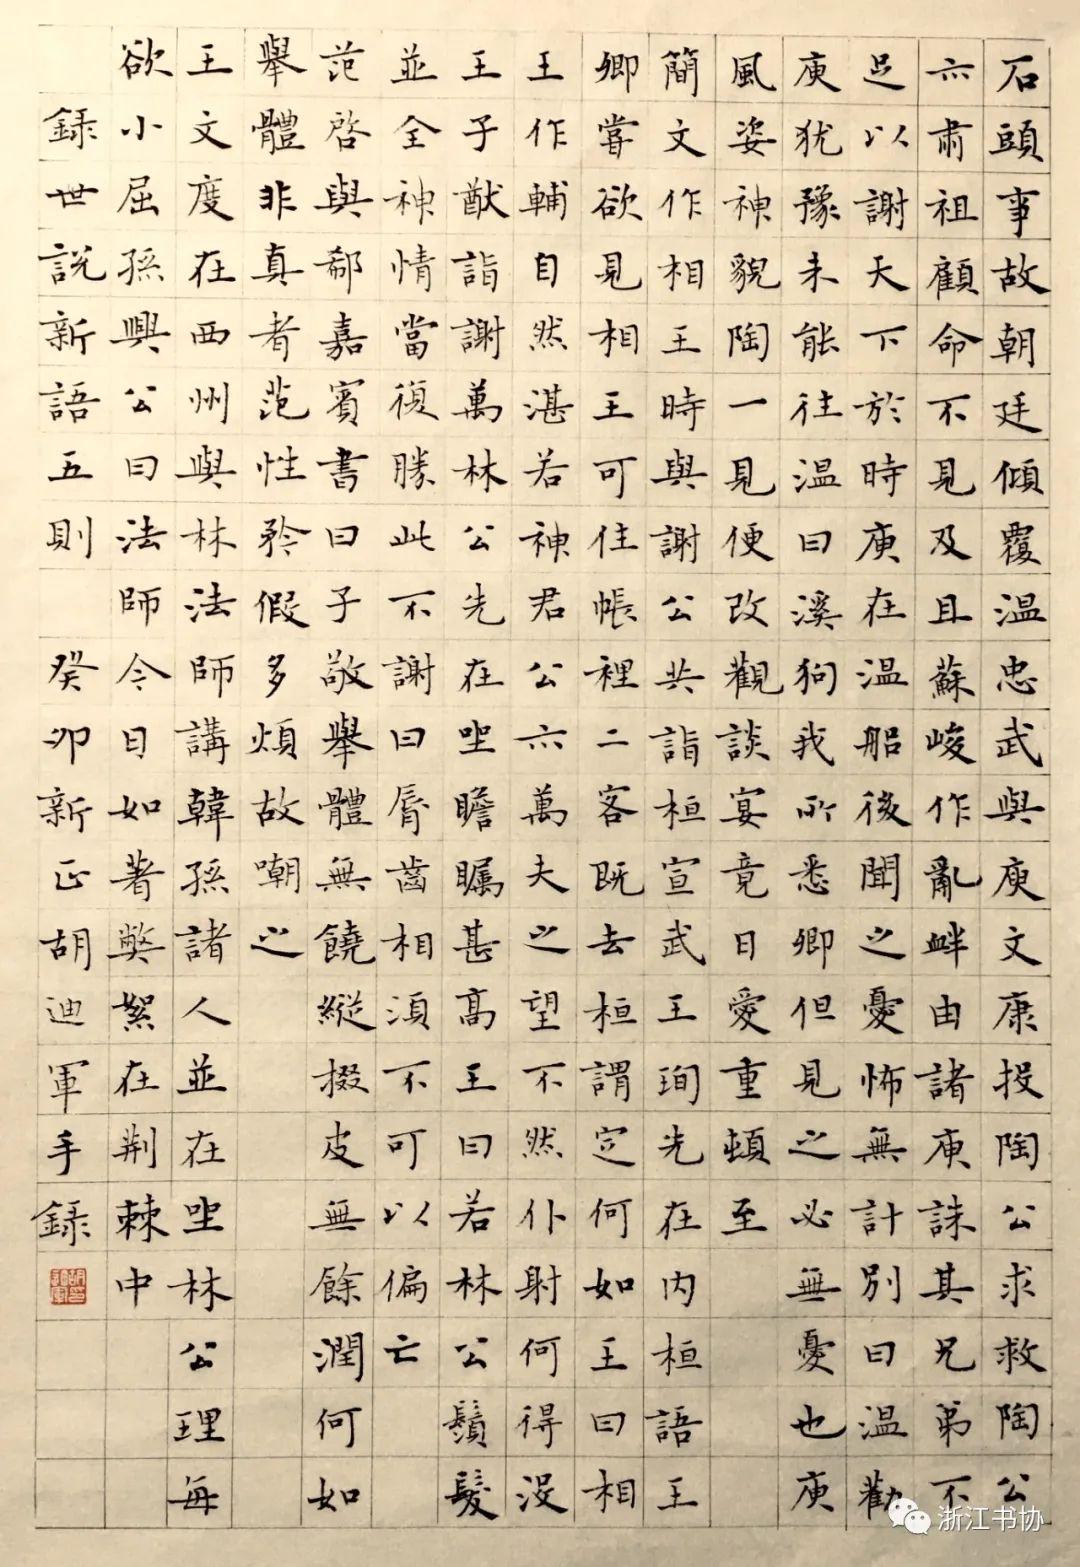 石頭事故朝廷傾覆温忠武與庾文康投陶公求救陶公
云肅祖顧命不見及且蘇峻作亂衅由諸庾誅其兄弟不
足以謝天下於時庾在温船後聞之憂怖無計別日温勸
庾犹豫未能往温曰溪狗我所悉卿但見之必無憂也庾
風姿神貌陶一見便改觀談宴竟日愛重頓至
簡文作相王時與謝公共詣桓宣武王珣先在内桓語王
卿嘗欲見相王可住帳裡二客既去桓謂定何如王曰相
王作輔自然湛若神君公亦萬夫之望不然仆射何得没
王子猷詣謝萬林公先在坐瞻矚甚高王曰若林公鬚髮
並全神情當復勝此不謝曰脣齒相湏不可以偏亡
范啓與郗嘉賓書曰子敬舉體無饒縱掇皮無餘潤何如
舉體非真者范性矜假多煩故嘲之
王文度在西州與林法師講韓孫諸人並在坐林公理每
欲小屈孫興公曰法師今日如著弊絮在荆棘中
録世説新語五則 癸卯新正胡迪軍手録
浙江书协